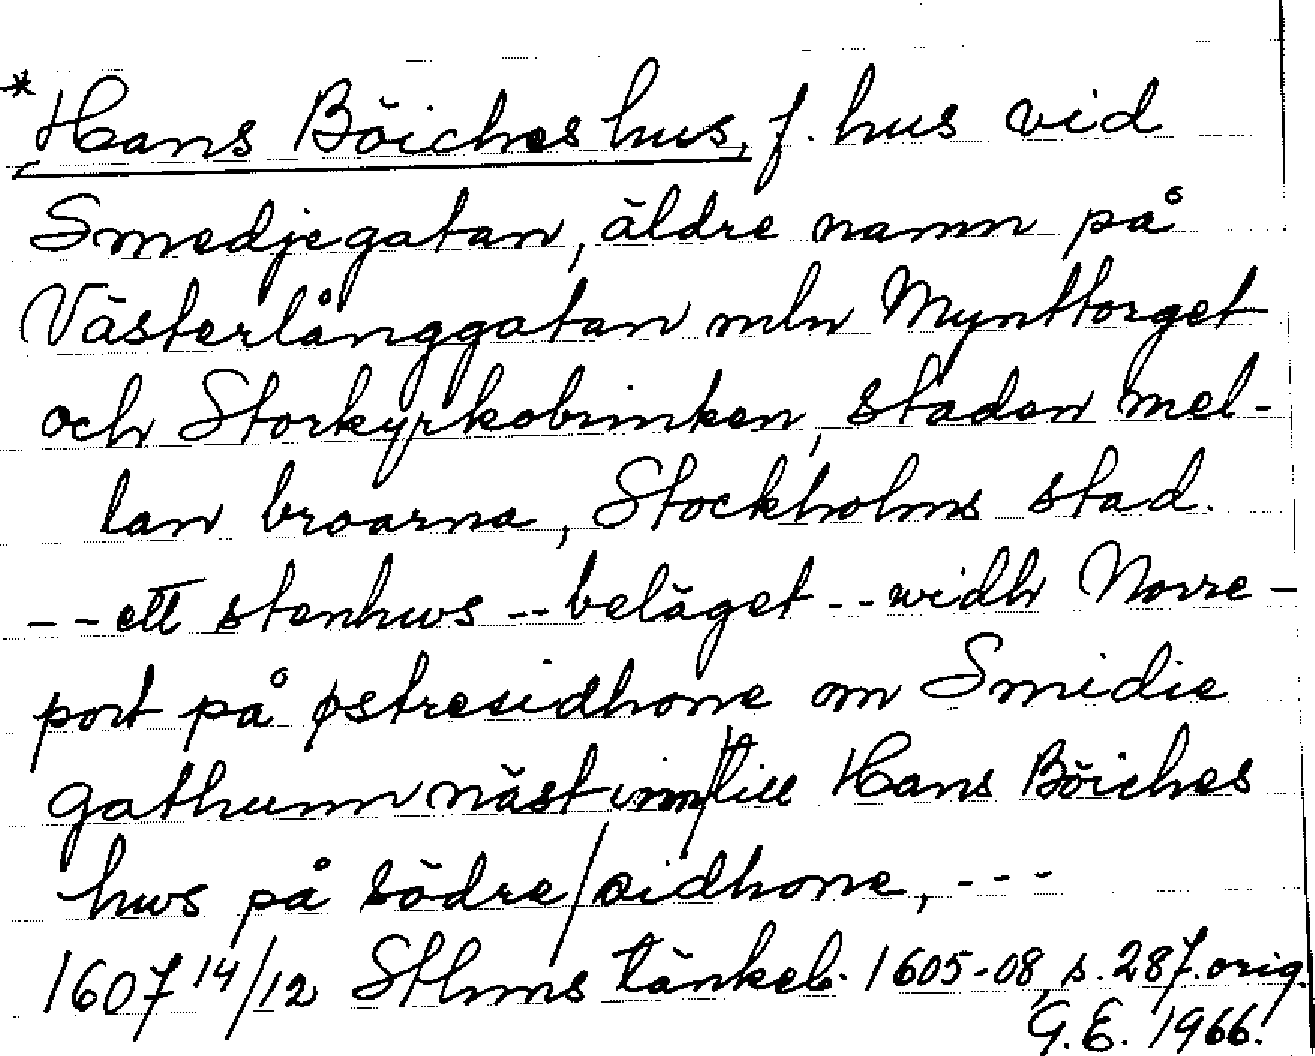 * Hans Böiches hus, f. hus vid
Smedjegatan, äldre namn på
Västerlånggatan mln Mynttorget
och Storkyrkobrinken, staden mel-
lan broarna, Stockholms stad.
-- ett stenhws -- beläget -- widh Norre-
port på østresidhone om Smidie
gathunn näst inn/till Hans Böiches
hws på södre/sidhone, ---
1607 14/12 Sthms tänkeb. 1605-08, s. 287. orig.
G.E. 1966.